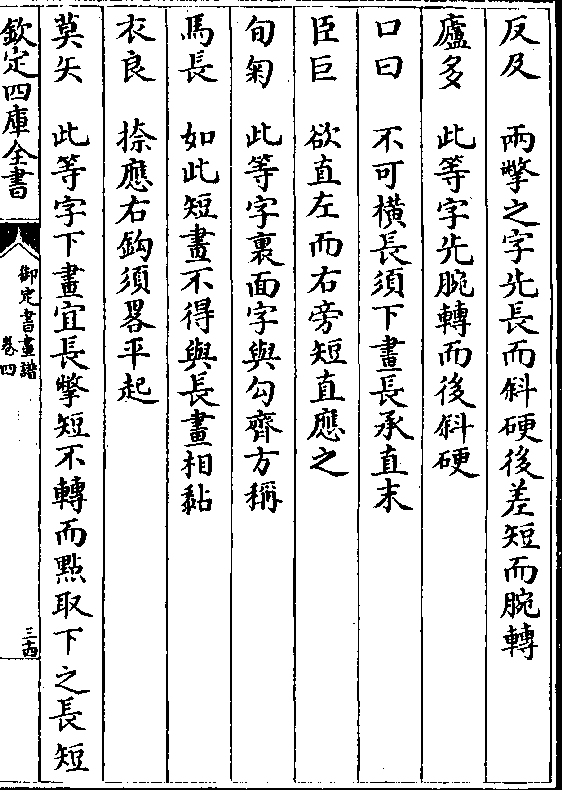 反及　兩撆之字先長而斜硬後差短而腕轉
廬多　此等字先腕轉而後斜硬
口曰　不可横長須下畫長承直末
臣巨　欲直左而右旁短直應之
旬匊　此等字裏面字與勾齊方稱
馬長　如此短畫不得與長畫相黏
衣良　捺應右鈎須畧平起
莫矢　此等字下畫宜長撆短不轉而㸃取下之長短
欽定四庫全書
御定書畫譜
卷四
三十四